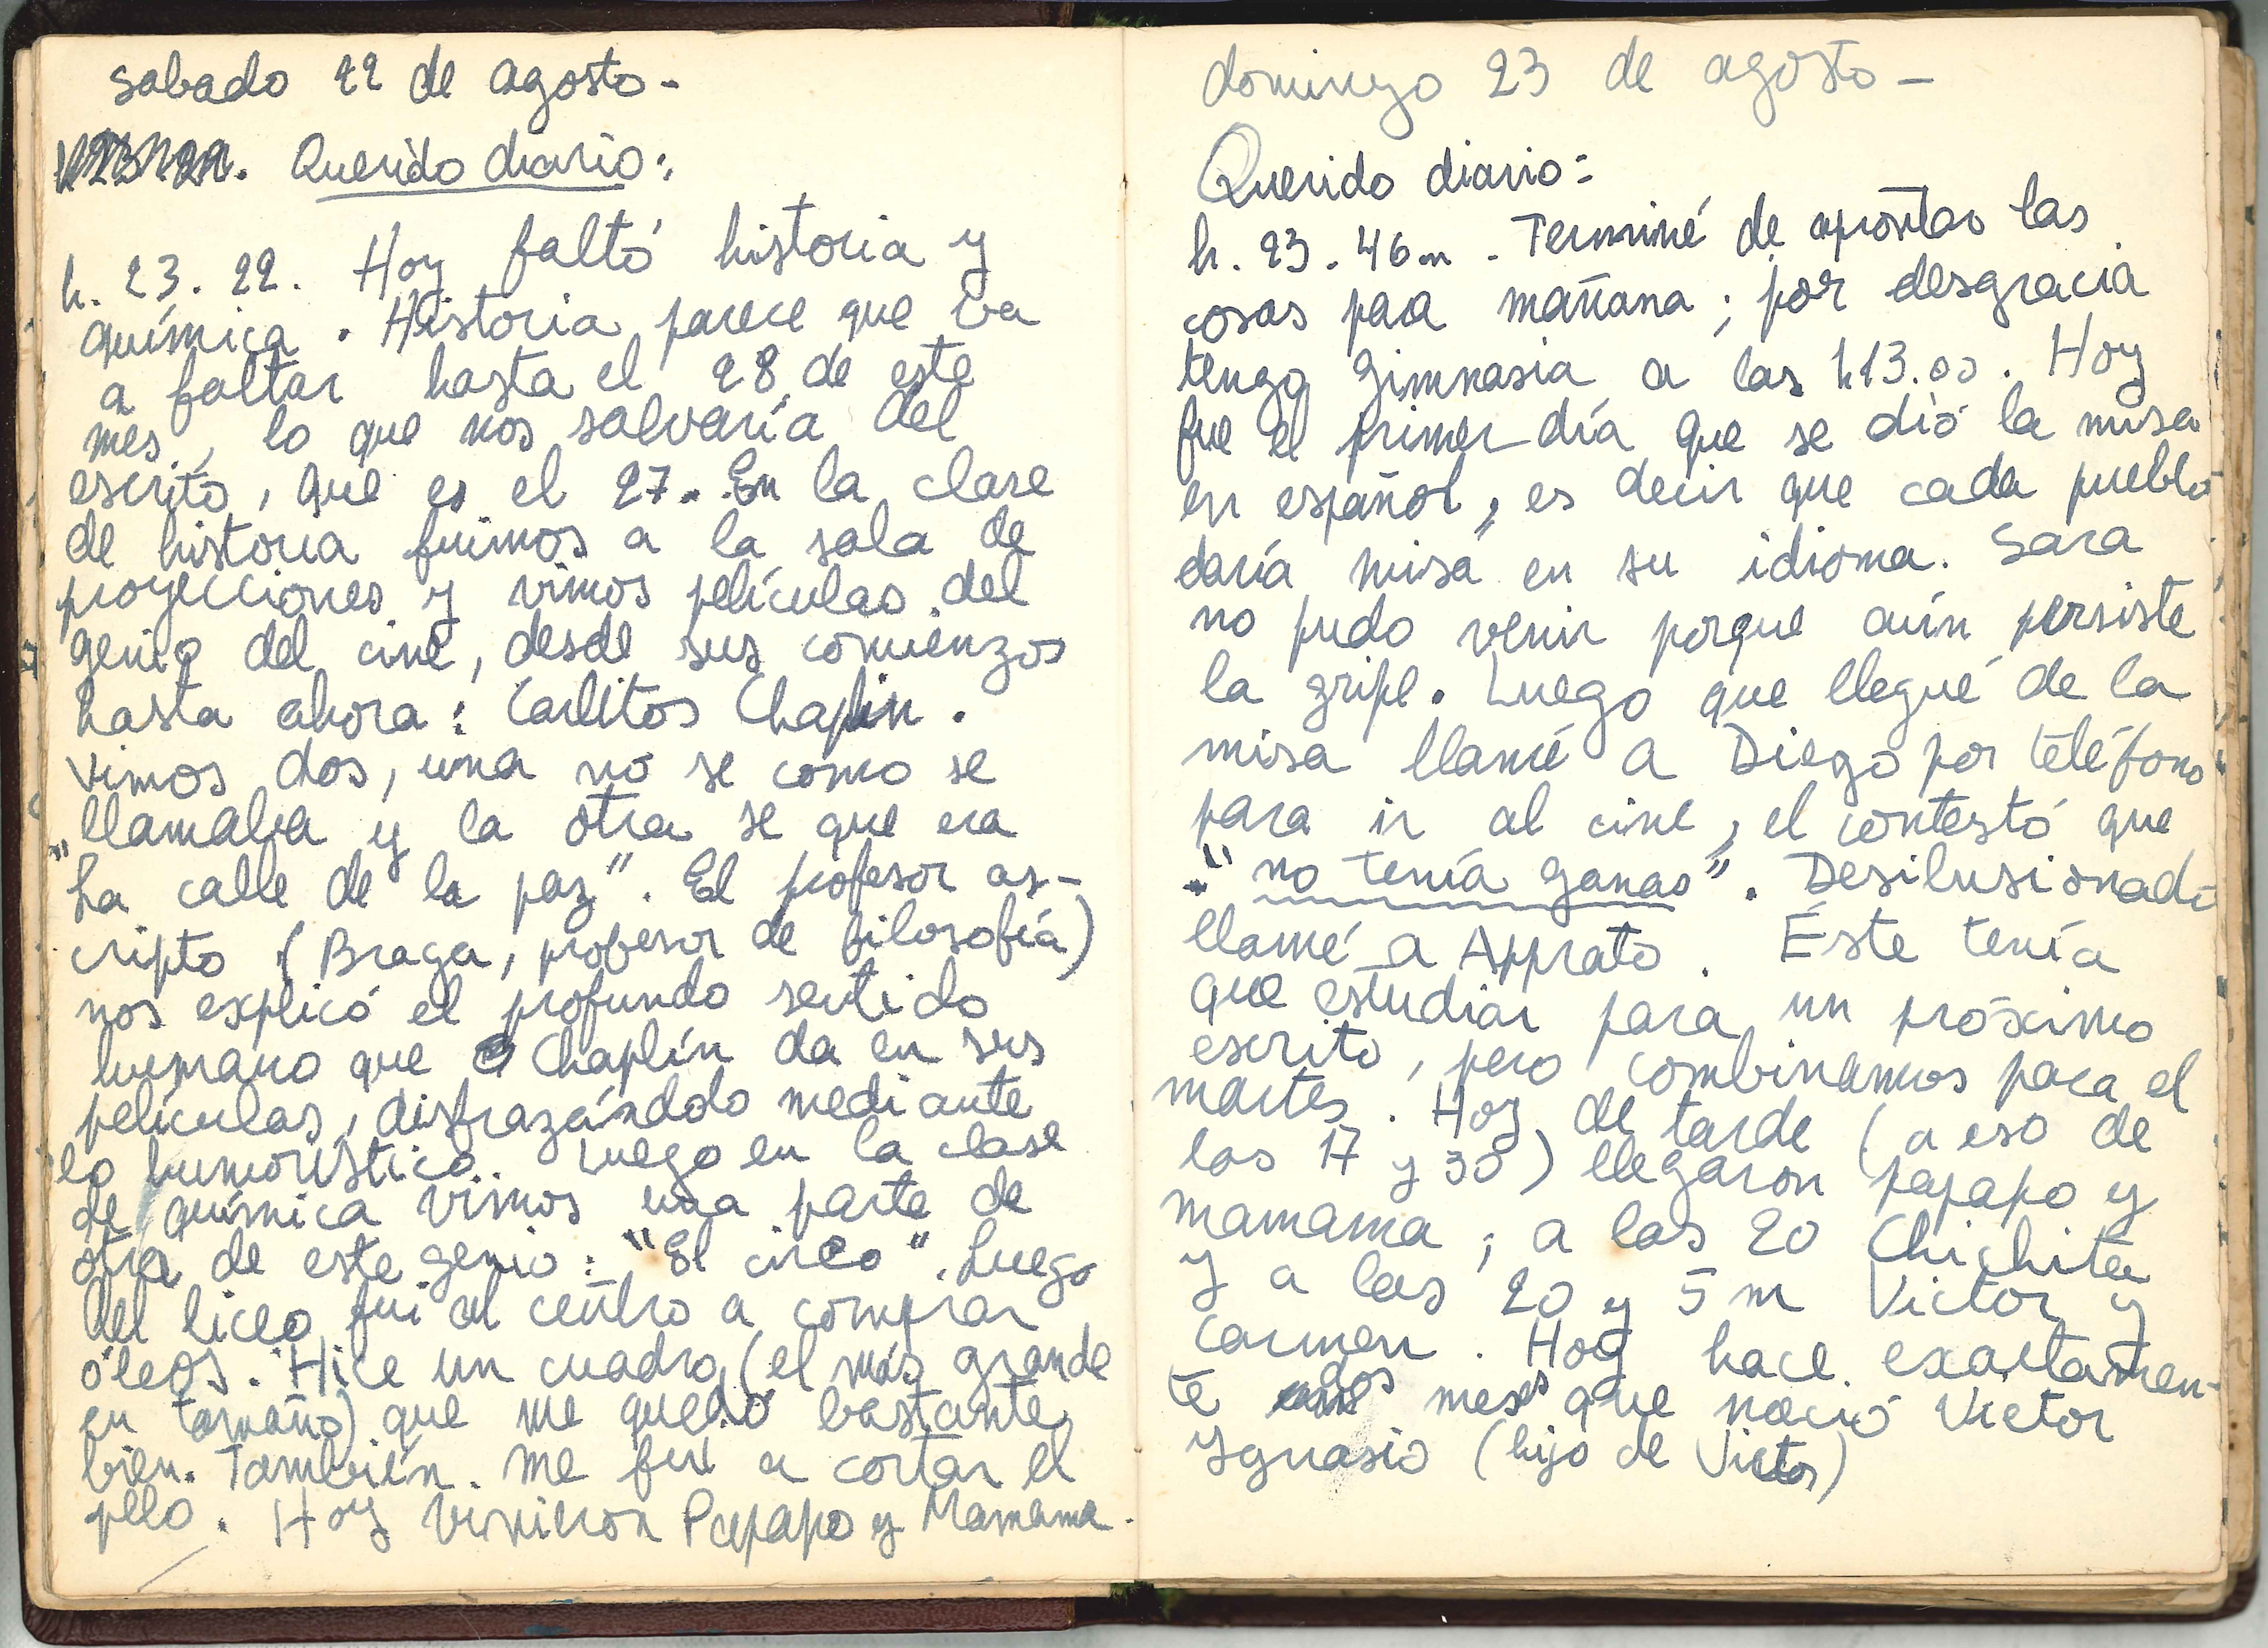 sabado 22 de agosto -
Querido diario:
h. 23. 22. Hoy faltó historia y
química. Historia parece que va
a faltar hasta el 28 de este
mes, lo que nos salvaría del
escrito, que es el 27. En la clase
de historia fuimos a la sala de
proyecciones y vimos películas del
genio del cine, desde sus comienzos
hasta ahora: Carlitos Chaplin.
Vimos dos, una no se como se
llamaba y la otra se que era
"La calle de la paz". El profesor as-
cripto (Braga, profesor de filosofía)
nos explicó el profundo sentido
humano que Chaplín da en sus
películas, disfrazándolo mediante
lo humorístico. Luego en la clase
de química vimos una parte de
otra de este genio: "El circo". Luego
del liceo fui al centro a comprar
óleos. Hice un cuadro (el más grande
en tamaño) que me quedó bastante
bien. También me fui a cortar el
pelo. Hoy vinieron Papapo y Mamama.
domingo 23 de agosto -
Querido diario:
h. 23. 46m. Terminé de aprontar las
cosas para mañana; por desgracia
tengo gimnasia a las h13.00. Hoy
fue el primer día que se dió la misa
en español, es decir que cada pueblo
daría misa en su idioma. Sara
no pudo venir porque aún persiste
la gripe. Luego que llegué de la
misa llamé a Diego por teléfono
para ir al cine, el contestó que
"no tenía ganas". Desilusionado
llamé a Apprato. Éste tenía
que estudiar para un próximo
escrito, pero combinamos para el
martes. Hoy de tarde (a eso de
las 17 y 30) llegaron papapo y
mamama; a las 20 Chichita
y a las 20 y 5 m Victor y
Carmen. Hoy hace exactamen-
te dos meses que nació Victor
Ygnasio (hijo de Victor)